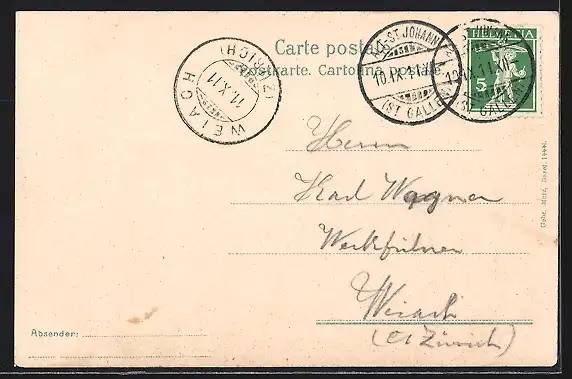 Carte postale.
Postkarte. Cartolina postale.
ALT-ST. JOHANN
10.IX.11.
(ST. GALLEN)
HELVETIA
5
WEIACH
11.X.11
(ZÜRICH)
Herrn
Karl Wagner
Werkführer
Weiach
(Ct Zürich)
Absender:
Gebr. Metz, Basel.